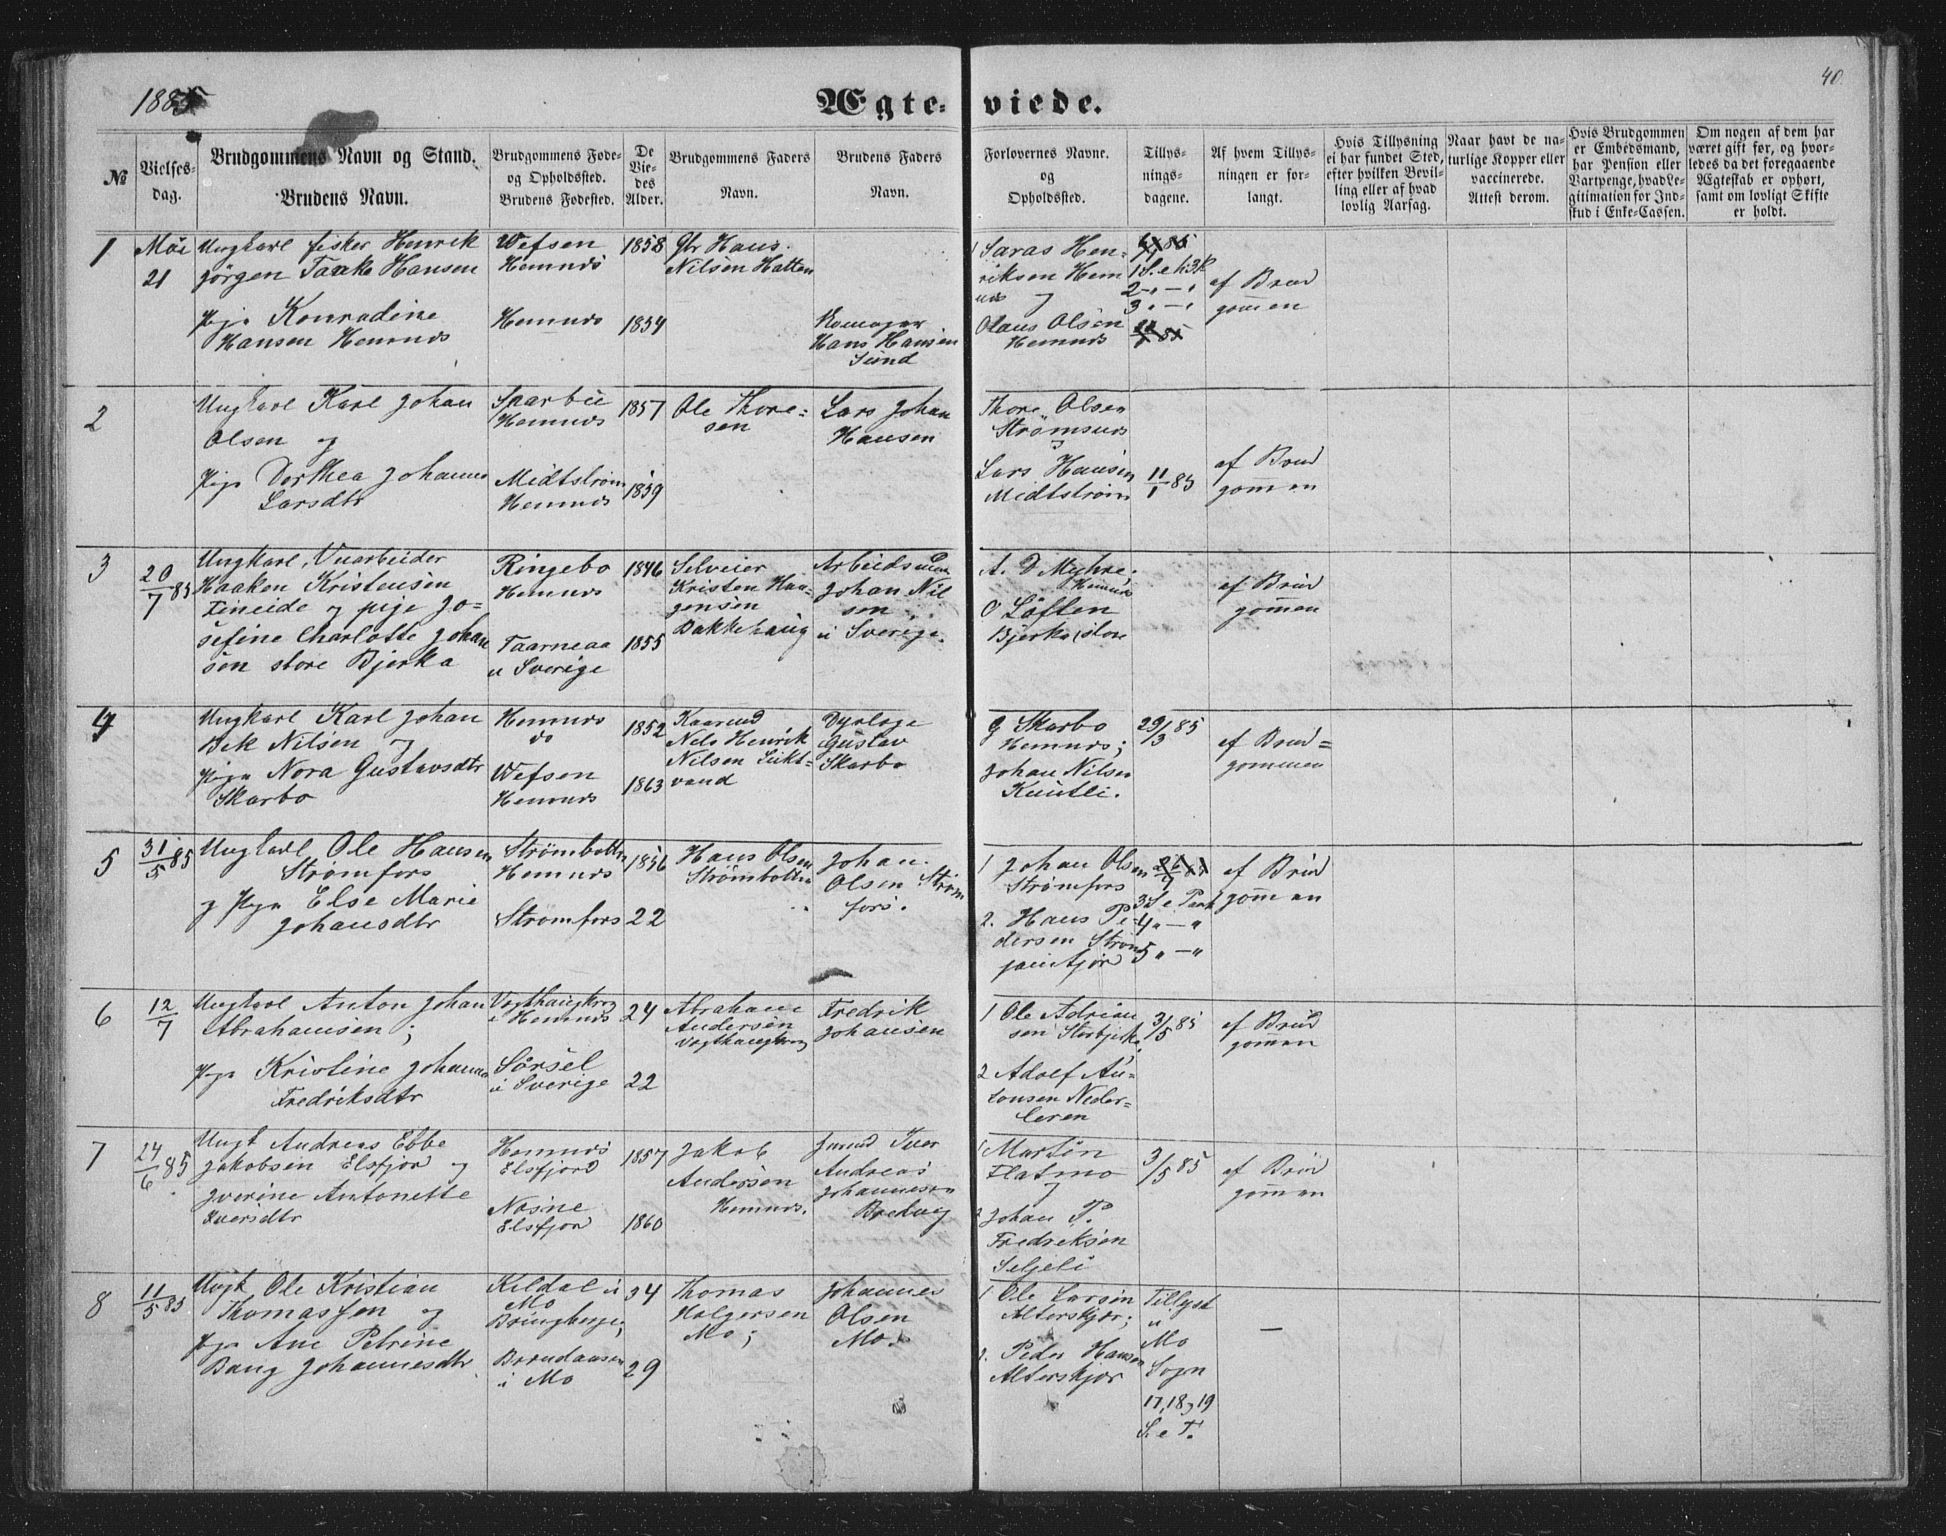 1885
Ægteviede.
40
№
Vielsesdag.
Brudgommens Navn og Stand.
Brudens Navn.
Brudgommens Føde- og Opholdsted.
Brudens Fødested.
De Viedes Alder.
Brudgommens Faders Navn.
Brudens Faders Navn.
Forlovernes Navne. og Opholdsted.
Tillysningsdagene.
Af hvem Tillysningen er forlangt.
Hvis Tillysning ei har fundet Sted, efter hvilken Bevilling eller af hvad lovlig Aarsag.
Naar havt de naturlige Kopper eller vaccinerede. Attest derom.
Hvis Brudgommen er Embedsmand, har Pension eller Vartpenge, hvad Legitimation for Indskud i Enke-Cassen.
Om nogen af dem har været gift før, og hvorledes da det foregaaende Ægteskab er ophørt, samt om lovligt Skifte er holdt.
1
Mai
21
Ungkarl fisker Henrik
Jørgen Taake Hansen
Pige Konradine
Hansen Hemnæs
Wefsen
Hemnæs
Hemnæs
1858
1854
Gbr Hans
Nilsen Hatten
Hans Hansen
Sund
Saras Hen-
riksen Hem
næs og
Olaus Olsen
Hemnæs
1 S. e h3k
2 " — "
3 " — "
af Brud
gommen
2
Ungkarl Karl Johan
Olsen og
Pige Dorthea Johanna
Larsdtr
Sparbu
Hemnæs
Midtstrøm
Hemnæs
1857
1859
Ole Thore-
sen
Lars Johan
Hansen
Thore Olsen
Strømsnæs
og
Lars Hansen
Midtstrøm
11/1 85
af Brud
gommen
3
20/7 85
Ungkarl, Vearbeider
Haaken Kristensen
Leneide og pige Jo-
sefine Charlotte Johan
sen store Bjerka
Ringebo
Hemnæs
Taarneaa
i Sverige
1846
1855
Selveier
Kristen Haa-
gensen
Bakkehaug
Arbeidsmand
Johan Nil
sen
i Sverige.
A. D Myhre,
Hemnæs
O Løften
Bjerka store
af Brud
gommen
4
Ungkarl Karl Johan
Bek Nilsen og
Pige Nora Gustavsdtr
Skarbo
Hemnæs
do
Wefsen
Hemnæs
1852
1863
Kaarmd
Nels Henrik
Nilsen Sukt-
vand
Dyrlæge
Gustav
Skarbo
G Skarbo
Hemnæs;
Johan Nilsen
Kuntli.
29/3 85
af Brud=
gommen
5
31/5 85
Ungkarl Ole Hansen
Strømfors
og Pige Else Marie
Johansdtr
Strømbotten
Hemnæs
Strømfors
1856
22
Hans Olsen
Strømbotten
Johan
Olsen Strøm
fors.
1 Johan Olsen
Strømfors
2. Hans Pe-
dersen Strøm
3 S e Paask
4 " — "
5 " — "
af Brud
gommen
6
12/7
Ungkarl Anton Johan
Abrahamsen;
Pige Kristine Johanna
Fredriksdtr
Vogthaugkrog
i Hemnæs
Sorsel
i Sverige
24
22
Abraham
Andersen
Vogthaugkrog
Fredrik
Johansen
1 Ole Adrian
sen Storbjerka
2 Adolf An-
tonsen Neder-
leren
3/5 85
af Brud
gommen
7
24/6 85
Ungk Andreas Ebbe
Jakobsen Elsfjord og
Iverine Antonette
Iversdtr
Hemnæs
Elsfjord
Næsne
Elsfjord
1857
1860
Jakob
Andersen
Hemnæs.
Iver
Andreas
Johannesen
Bredvig
1 Martin
Flatmo
og
2 Johan P.
Fredriksen
Seljeli
3/5 85
af Brud
gommen
8
11/5 85
Ungk Ole Kristian
Thomassen og
Pige Ane Petrine
Bang Johannesdtr
Kildal i
Mo
i Mo
34
29
Thomas
Holgersen
Mo;
Johannes
Olsen
Mo.
1 Ole Larsen
Alterskjær;
2. Peder Hansen
Alterskjær
Tillyst
i
Mo
Sogn
17, 18, 19
S. e T.
—